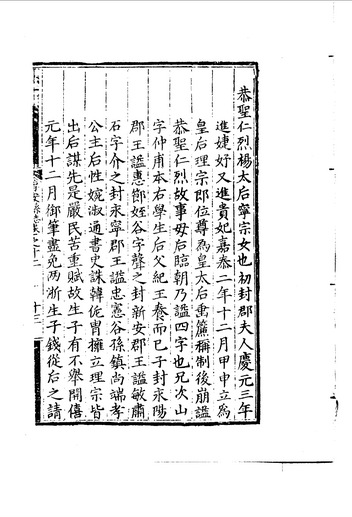 恭聖仁烈楊太后寧宗女也初封郡夫人慶元三年
進婕妤又進貴妃嘉泰二年十二月甲申立為
皇后理宗即位尊為皇太后垂簾稱制後崩謚
恭聖仁烈故事母后臨朝乃謚四字也兄次山
字仲甫本右學生后父紀王養而已子封永陽
郡王謚惠節姪谷字聲之封新安郡王謚敏肅
石字介之封永寧郡王謚忠憲谷孫鎮尚端孝
公主后性婉淑通書史誅韓侂冑擁立理宗皆
出后謀先是嚴民苦重賦故生子有不舉開僖
元年十二月御筆盡免兩浙生子錢從后之請
卷之十二